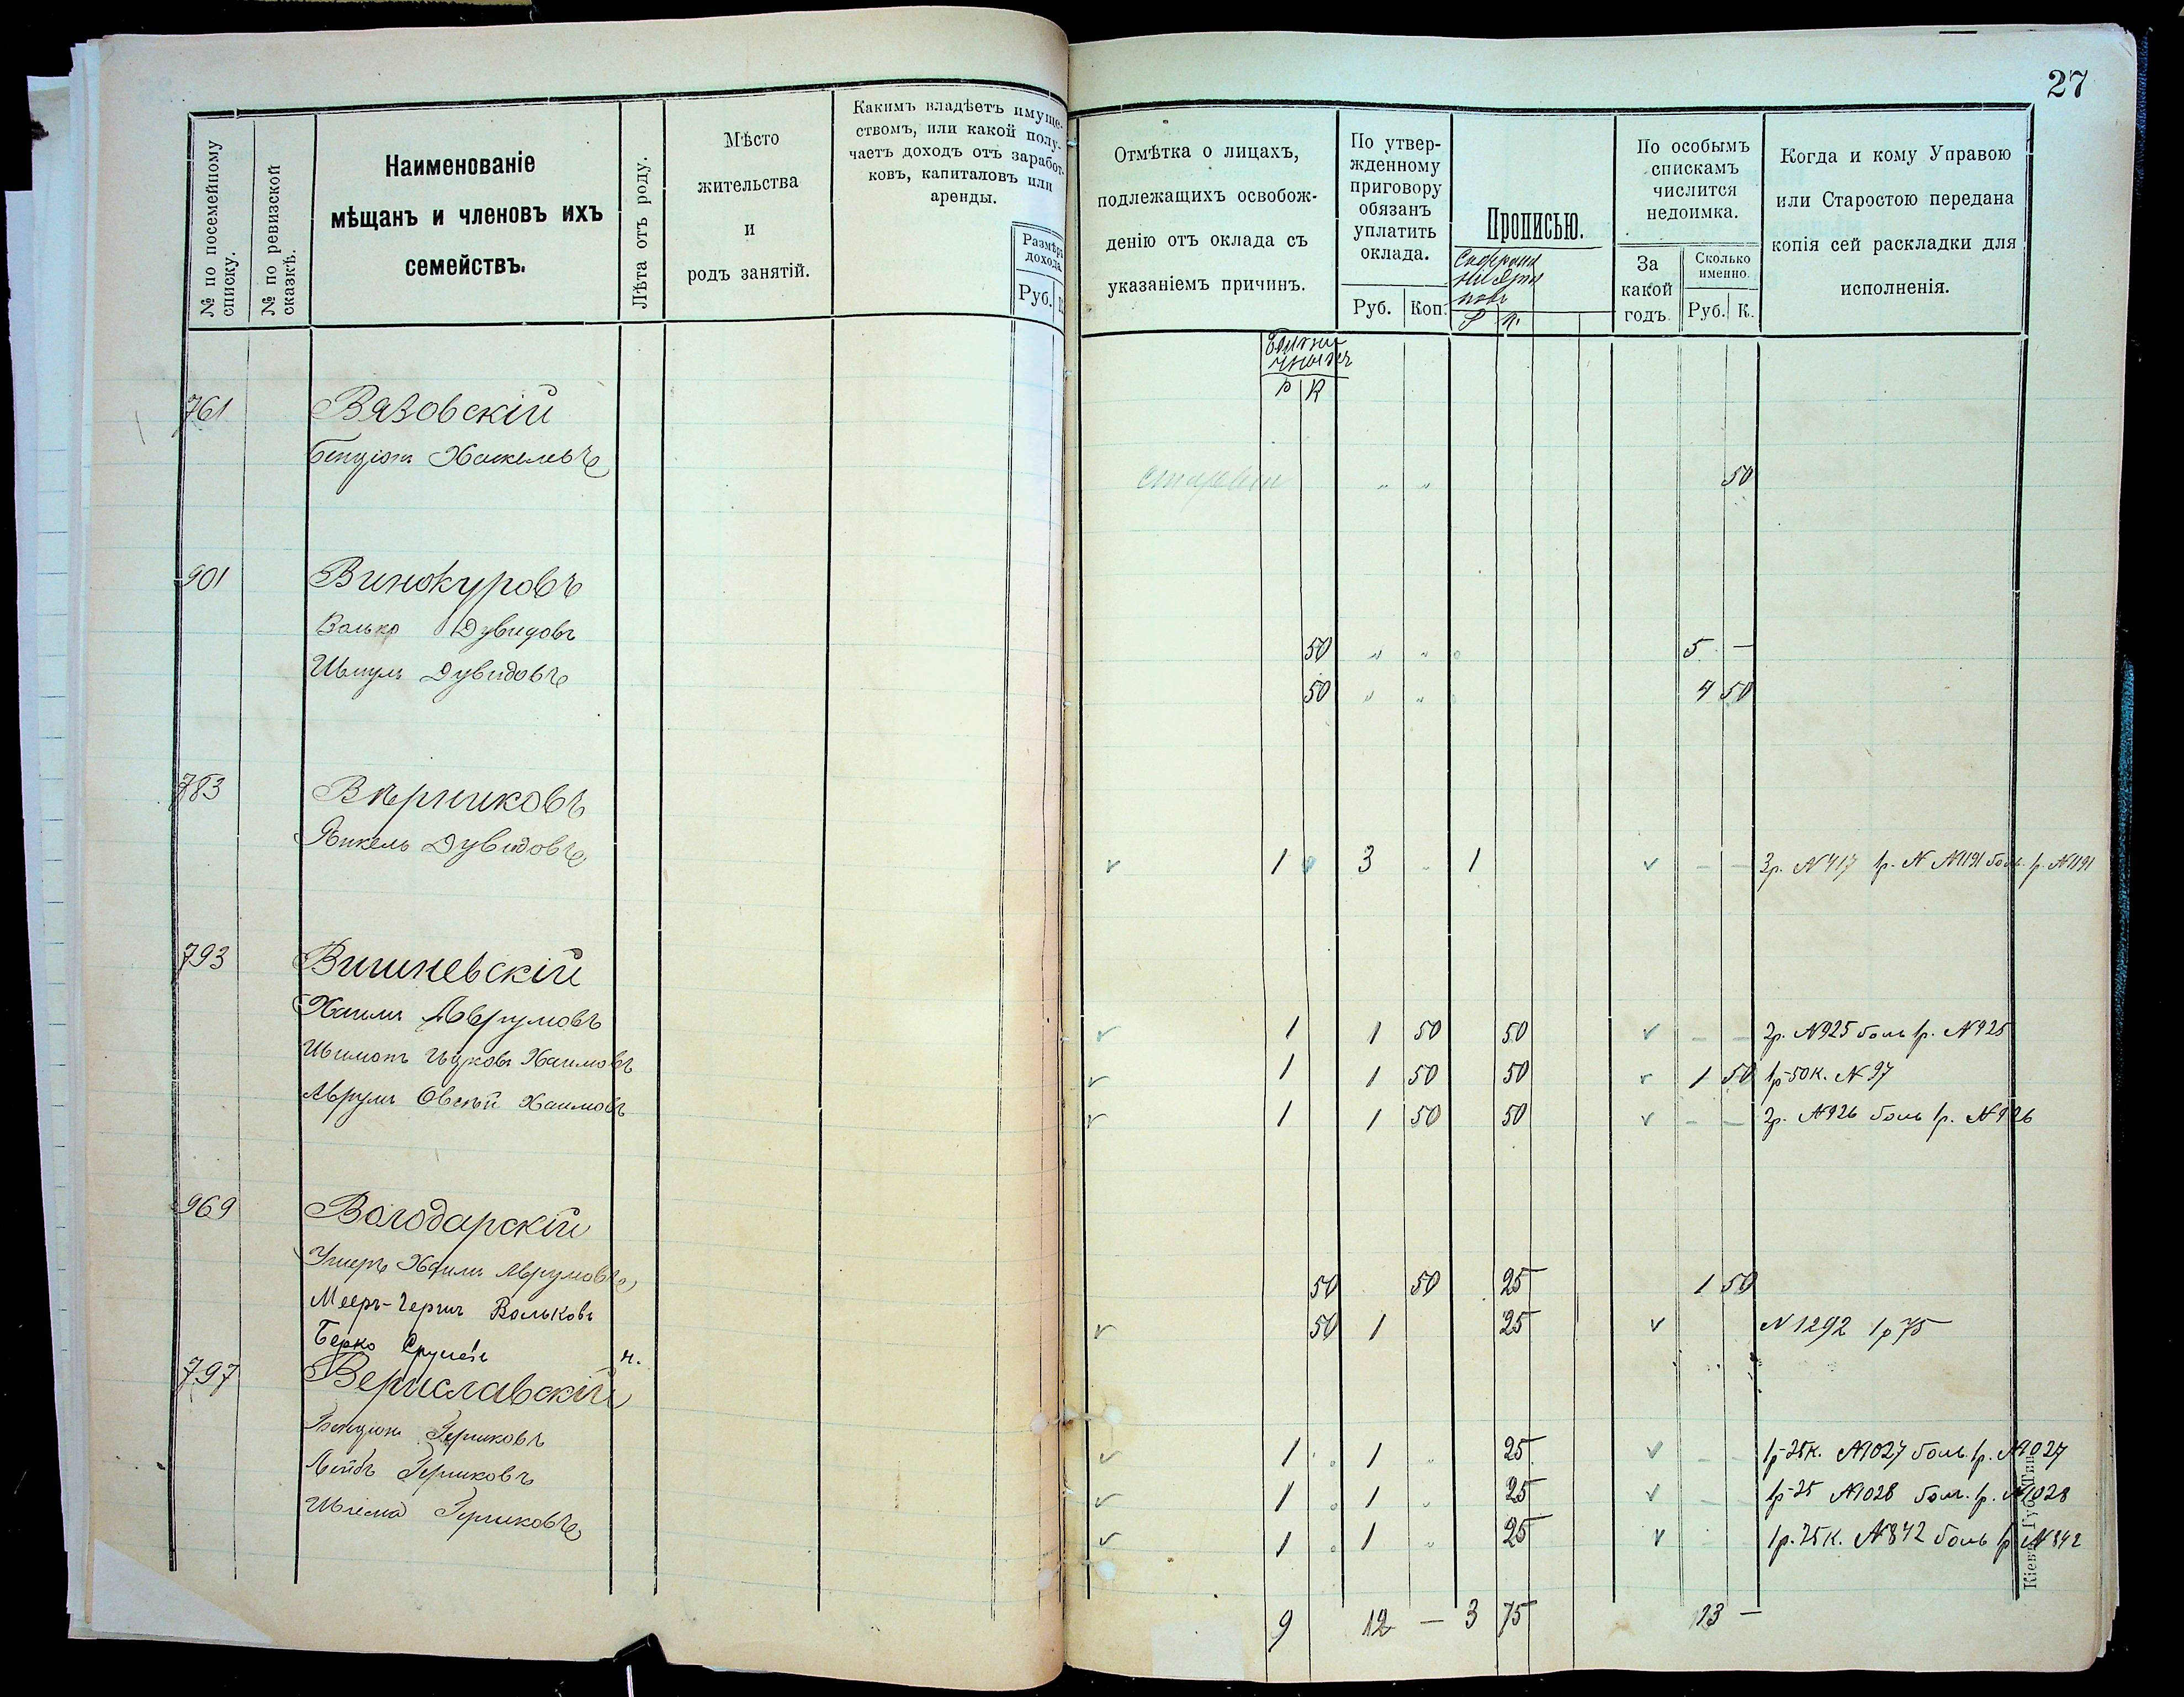 27
№ по посемейному списку.
№ по ревизской сказкѣ.
Наименованіе
мѣщанъ и членовъ ихъ
семействъ.
Лѣта отъ роду.
Мѣсто
жительства
и
родъ занятій.
Какимъ владѣетъ имуще-
ствомъ, или какой полу-
чаетъ доходъ отъ заработ-
ковъ, капиталовъ или
аренды.
Размѣръ
дохода
Руб.
Отмѣтка о лицахъ,
подлежащихъ освобож-
денію отъ оклада съ
указаніемъ причинъ.
По утвер-
жденному
приговору
обязанъ
уплатить
оклада.
Руб. Коп.
Прописью.
Р К.
По особымъ
спискамъ
числится
недоимка.
За
какой
годъ
Сколько
именно.
Руб. К.
Когда и кому Управою
или Старостою передана
копія сей раскладки для
исполненія.
Р К
761 Вязовскій
Бенціонъ Хаскелевъ " " 50
901 Винокуровъ
Волько Дувидовъ 50 " " 5 —
Шмуль Дувидовъ 50 " " 4 50
783 Вѣрниковъ
Янкель Дувидовъ v 1 v 3 " 1 v — — 3р. N 417 1р. N N1191 боль. р. N1191
793 Вишневскій
Хаимъ Аврумовъ v 1 1 50 50 v — — 2р. N925 боль 1р. N925
Шимонъ Ицковъ Хаимовъ v 1 1 50 50 v 1 50 1р-50к. N 97
Аврумъ Овсѣй Хаимовъ v 1 1 50 50 v — — 2р. N926 боль 1р. N926
969 Володарскій
Ушеръ Хаимъ Аврумовъ 50 50 25 1 50
Мееръ-Гершъ Вольковъ v 50 1 25 v N 1292 1р 75
Берко Срулевъ н.
797 Вериславскій
Бенціонъ Гершковъ v 1 1 " 25 v — — 1р-25к. N1027 боль. 1р. N1027
Лейбъ Гершковъ v 1 1 " 25 v — — 1р-25 N1028 боль. 1р. N1028
Шлема Гершковъ v 1 1 " 25 v — — 1р. 25к. N842 боль 1р N842
9 12 — 3 75 13 —